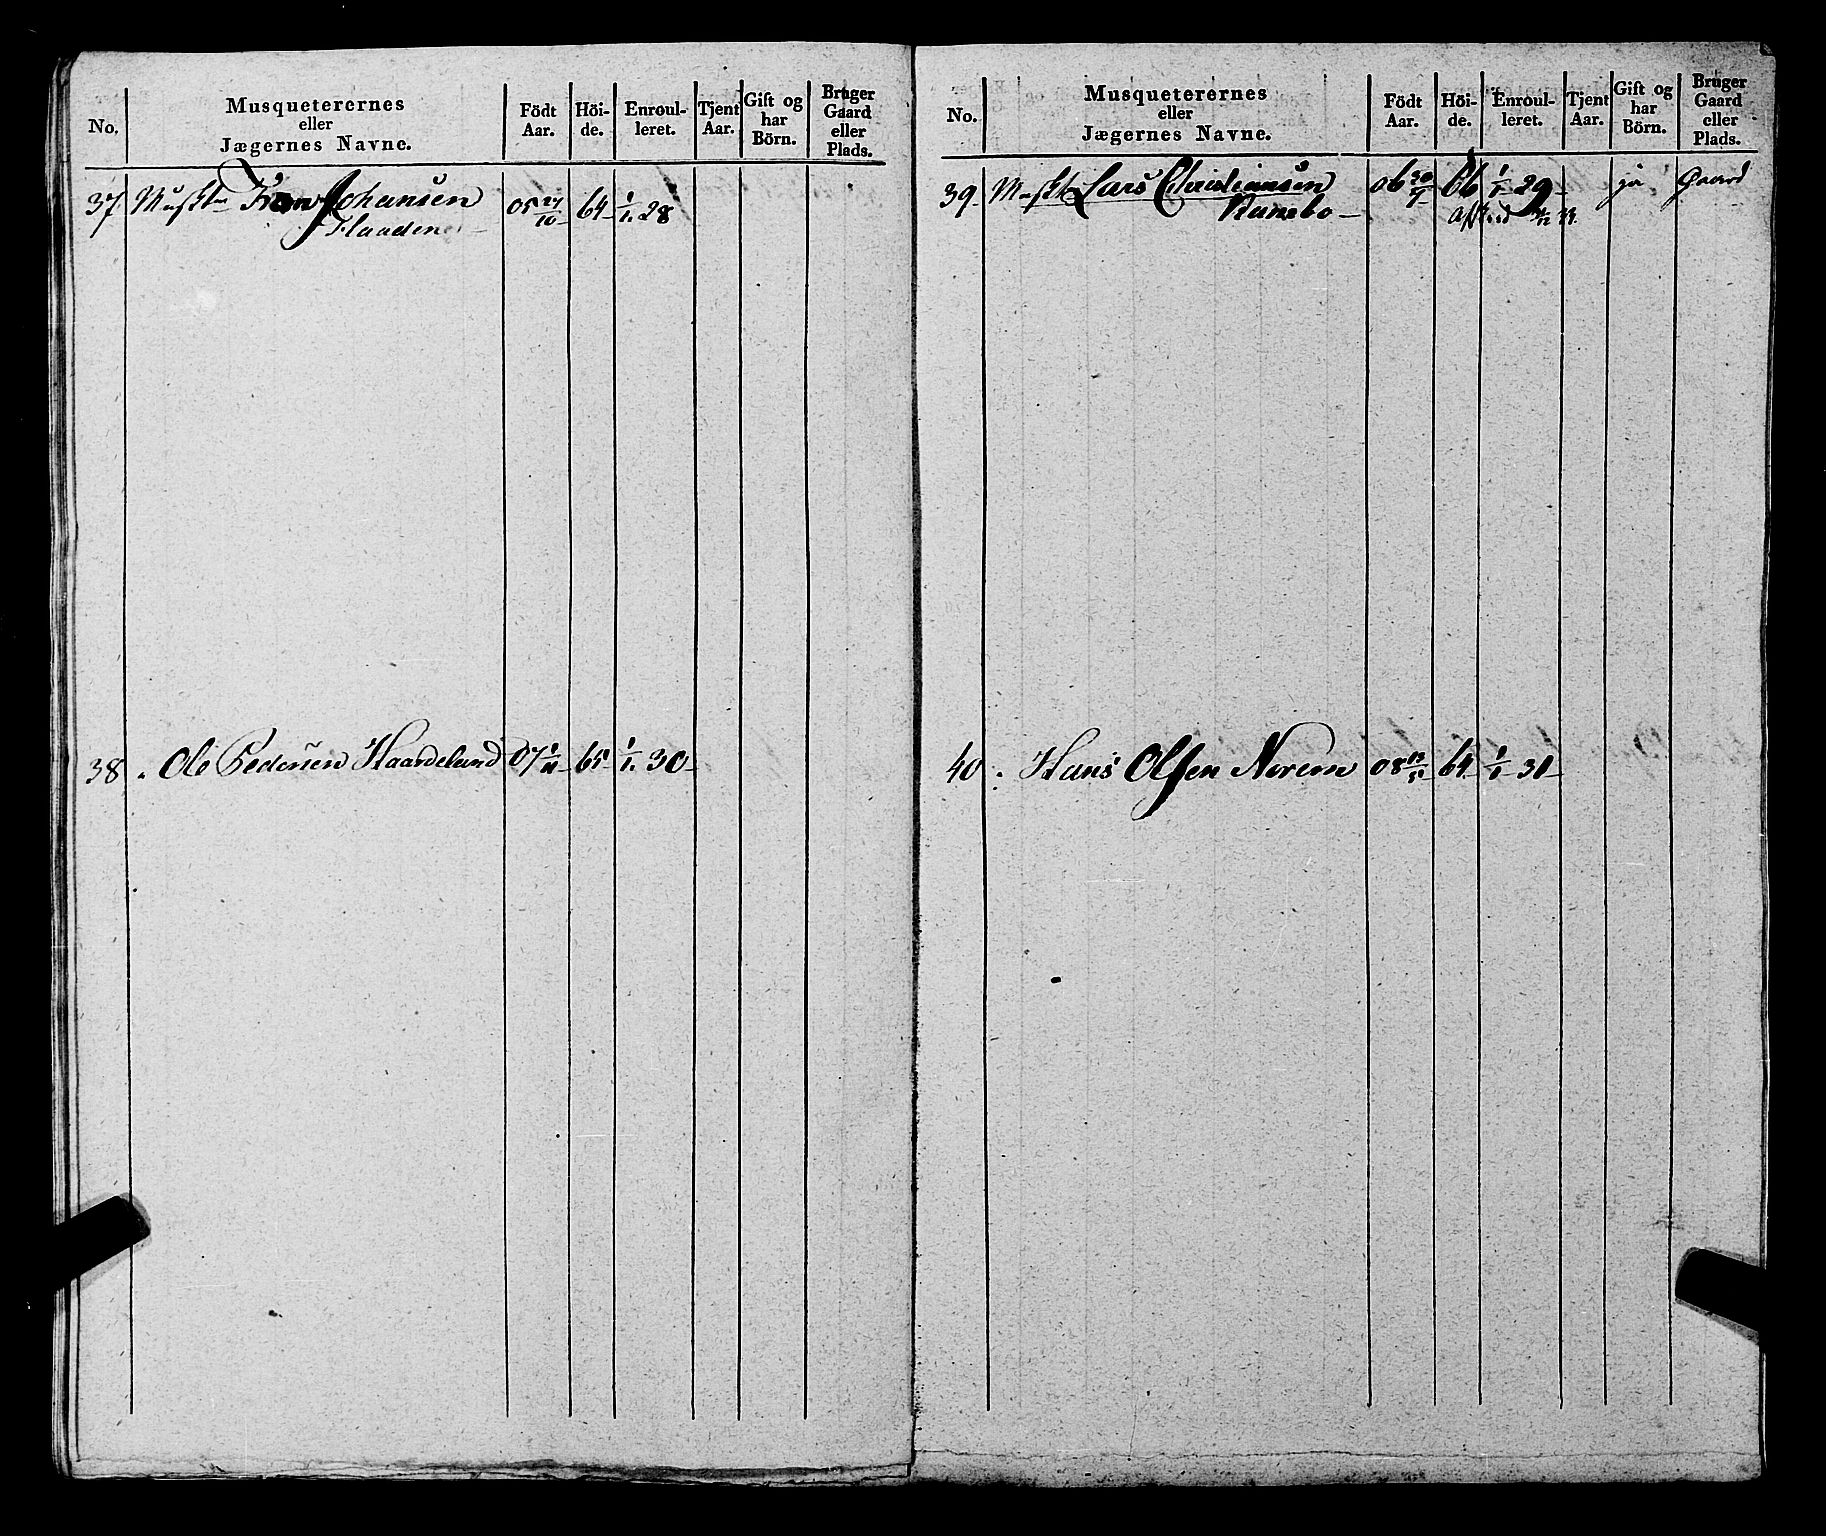 No.
Musqueterernes
eller
Jægernes Navne.
Födt
Aar.
Höi-
de.
Enroul-
leret.
Tjent
Aar.
Gift og
har
Börn.
Bruger
Gaard
eller
Plads.
37 Johansen 05 64 1/1 28
38 Ole Pedersen Haardelund 07 65 1/1 30
No.
Musqueterernes
eller
Jægernes Navne.
Födt
Aar.
Höi-
de.
Enroul-
leret.
Tjent
Aar.
Gift og
har
Börn.
Bruger
Gaard
eller
Plads.
39 Lars Christiansen 06 66 1/1 29 ja Gaard
Ramsbo
40 Hans Olsen Norem 08 64 1/1 31